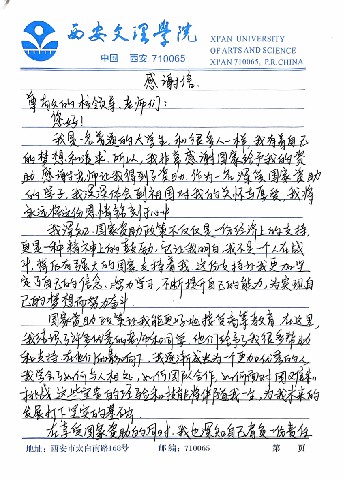 西安文理学院
中国 西安 710065
XI'AN UNIVERSITY
OF ARTS AND SCIENCE
XI'AN 710065, P.R.CHINA
感谢信
尊敬的校领导、老师们：
您好！
我是一名普通的大学生，和很多人一样，我有着自己
的梦想和追求。所以，我非常感谢国家给予我的资
助，感谢老师让我得到了资助。作为一名深受国家资助
的学子，我深深体会到祖国对我的关怀与厚爱，我将
永远将这份恩情铭刻于心中
我深知，国家资助政策不仅仅是一份经济上的支持，
更是一种精神上的鼓励。它让我明白，我不是一个人在战
斗，背后有强大的国家支持着我。这份支持让我更加坚
定了自己的信念，努力学习，不断提升自己的能力，为实现自
己的梦想而努力奋斗。
国家资助政策让我能更好地接受高等教育。在这里，
我结识了许多优秀的老师和同学，他们给予了我很多帮助
和支持。在他们的影响下，我逐渐成长为一个更加优秀的人。
我学会了如何与人相处，如何团队合作，如何面对困难和
挑战。这些宝贵的经验和技能将伴随我一生，为我未来的
发展打下坚实的基础。
在享受国家资助的同时，我也深知自己肩负一份责任
地址：西安市太白南路168号 邮编：710065 第 页